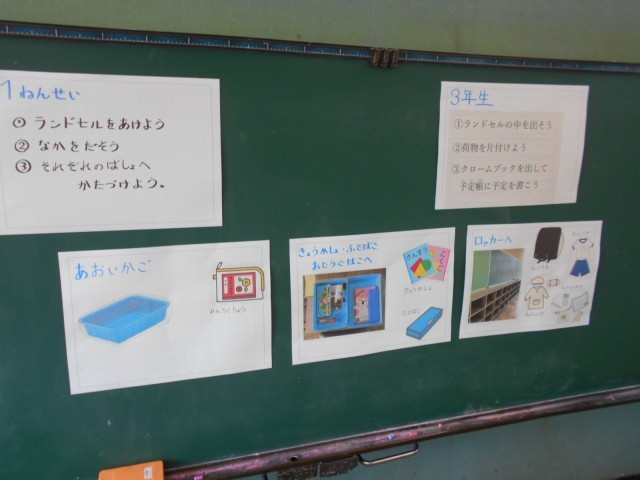 1ねんせい
① ランドセルをあけよう
② なかをだそう
③ それぞれのばしょへ
かたづけよう。
3年生
①ランドセルの中を出そう
②荷物を片付けよう
③クロームブックを出して
予定帳に予定を書こう
あおいかご
れんらくちょう
きょうかしょ・ふでばこ
おどうぐばこへ
さんすう
こくご
きょうかしょ
ふでばこ
ロッカーへ